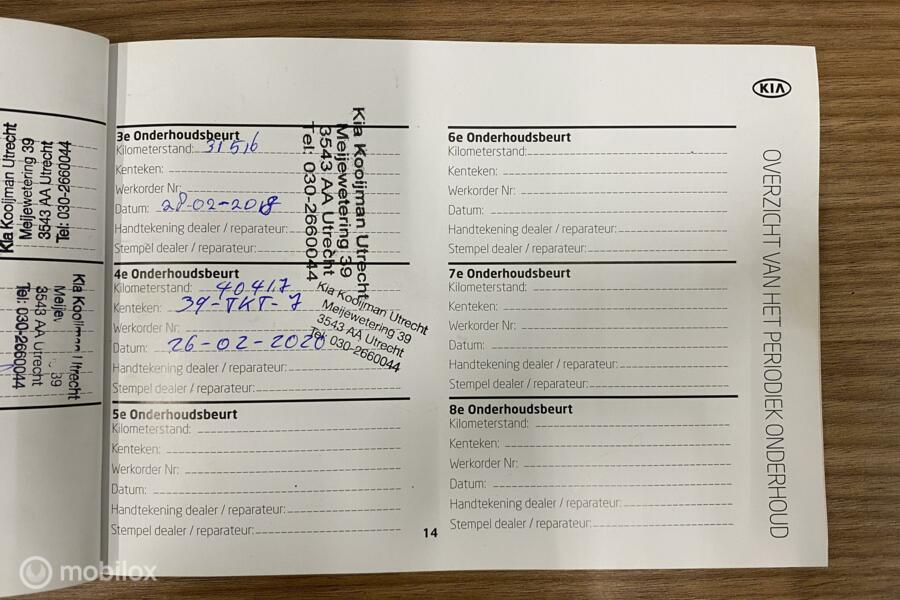 Kia Kooijman Utrecht
Meijewetering 39
3543 AA Utrecht
Tel: 030-2660044
Kia Kooijman Utrecht
Meijewetering 39
3543 AA Utrecht
Tel: 030-2660044
3e Onderhoudsbeurt
Kilometerstand: 31516
Kenteken:
Werkorder Nr:
Datum: 28-02-2018
Handtekening dealer / reparateur:
Stempel dealer / reparateur:
Kia Kooijman Utrecht
Meijewetering 39
3543 AA Utrecht
Tel: 030-2660044
4e Onderhoudsbeurt
Kilometerstand: 40417
Kenteken: 39-TKT-7
Werkorder Nr:
Datum: 26-02-2020
Handtekening dealer / reparateur:
Stempel dealer / reparateur:
Kia Kooijman Utrecht
Meijewetering 39
3543 AA Utrecht
Tel: 030-2660044
5e Onderhoudsbeurt
Kilometerstand:
Kenteken:
Werkorder Nr:
Datum:
Handtekening dealer / reparateur:
Stempel dealer / reparateur:
14
6e Onderhoudsbeurt
Kilometerstand:
Kenteken:
Werkorder Nr:
Datum:
Handtekening dealer / reparateur:
Stempel dealer / reparateur:
7e Onderhoudsbeurt
Kilometerstand:
Kenteken:
Werkorder Nr:
Datum:
Handtekening dealer / reparateur:
Stempel dealer / reparateur:
8e Onderhoudsbeurt
Kilometerstand:
Kenteken:
Werkorder Nr:
Datum:
Handtekening dealer / reparateur:
Stempel dealer / reparateur:
KIA
OVERZICHT VAN HET PERIODIEK ONDERHOUD
mobilox